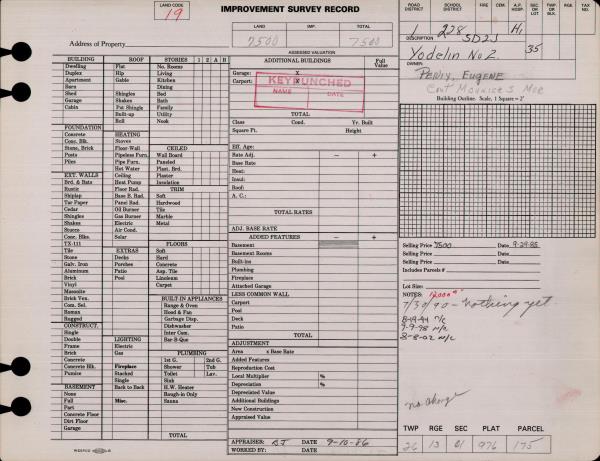 LAND CODE
19
IMPROVEMENT SURVEY RECORD
LAND IMP. TOTAL
7500 7500
ASSESSED VALUATION
Address of Property
ROAD DISTRICT SCHOOL DISTRICT FIRE CEM. A.P. HOSP. SEC OR LOT TWP OR BLK. RGE TAX NO.
1 228 H1
DESCRIPTION SD2J
Yodelin No 2. 35
OWNER
Perry, Eugene
Cont Maurice S Moe
Building Outline: Scale, 1 Square = 2'
BUILDING ROOF STORIES 1 2 A B
Dwelling Flat No. Rooms
Duplex Hip Living
Apartment Gable Kitchen
Barn Dining
Shed Shingles Bed
Garage Shakes Bath
Cabin Pat Shingle Family
Built-up Utility
Roll Nook
FOUNDATION
Concrete HEATING
Conc. Blk. Stoves
Stone, Brick Floor-Wall CEILED
Posts Pipeless Furn. Wall Board
Piles Pipe Furn. Paneled
Hot Water Plast. Brd.
EXT. WALLS Ceiling Plaster
Brd. & Bats Heat Pump Insulation
Rustic Floor Rad. TRIM
Shiplap Base B. Rad. Soft
Tar Paper Panel Rad. Hardwood
Cedar Oil Burner Tile
Shingles Gas Burner Marble
Shakes Electric Metal
Stucco Air Cond.
Conc. Blks. Solar
TX-111 FLOORS
Tile EXTRAS Soft
Stone Decks Hard
Galv. Iron Porches Concrete
Aluminum Patio Asp. Tile
Brick Pool Linoleum
Vinyl Carpet
Masonite
Brick Ven. BUILT-IN APPLIANCES
Com. Sel. Range & Oven
Roman Hood & Fan
Rugged Garbage Disp.
CONSTRUCT. Dishwasher
Single Inter Com.
Double LIGHTING Bar-B-Que
Frame Electric
Brick Gas PLUMBING
Concrete 1st G. 2nd G.
Concrete Blk. Fireplace Shower Tub
Pumice Stacked Toilet Lav.
Single Sink
BASEMENT Back to Back H.W. Heater
None Rough-in Only
Full Misc. Sauna
Part
Concrete Floor
Dirt Floor
Garage TOTAL
ADDITIONAL BUILDINGS Full Value
Garage: X
Carport: X
KEYPUNCHED
NAME DATE
TOTAL
Class Cond. Yr. Built
Square Ft. Height
Eff. Age:
Rate Adj. − +
Base Rate
Heat:
Insul:
Roof:
A. C.:
TOTAL RATES
ADJ. BASE RATE
ADDED FEATURES − +
Basement
Basement Rooms
Built-ins
Plumbing
Fireplace
Attached Garage
LESS COMMON WALL
Carport
Pool
Deck
Patio
TOTAL
ADJUSTMENT
Area x Base Rate
Added Features
Reproduction Cost
Local Multiplier %
Depreciation %
Depreciated Value
Additional Buildings
New Construction
Appraised Value
APPRAISER: DATE 9-10-86
WORKED BY: DATE
Selling Price 7500 Date 9-29-85
Selling Price Date
Selling Price Date
Includes Parcels #
Lot Size:
NOTES:
7/30/90 - nothing yet
8-19-94 N/C
9-9-98 N/C
8-8-02 N/C
no change
TWP RGE SEC PLAT PARCEL
26 13 01 976 175